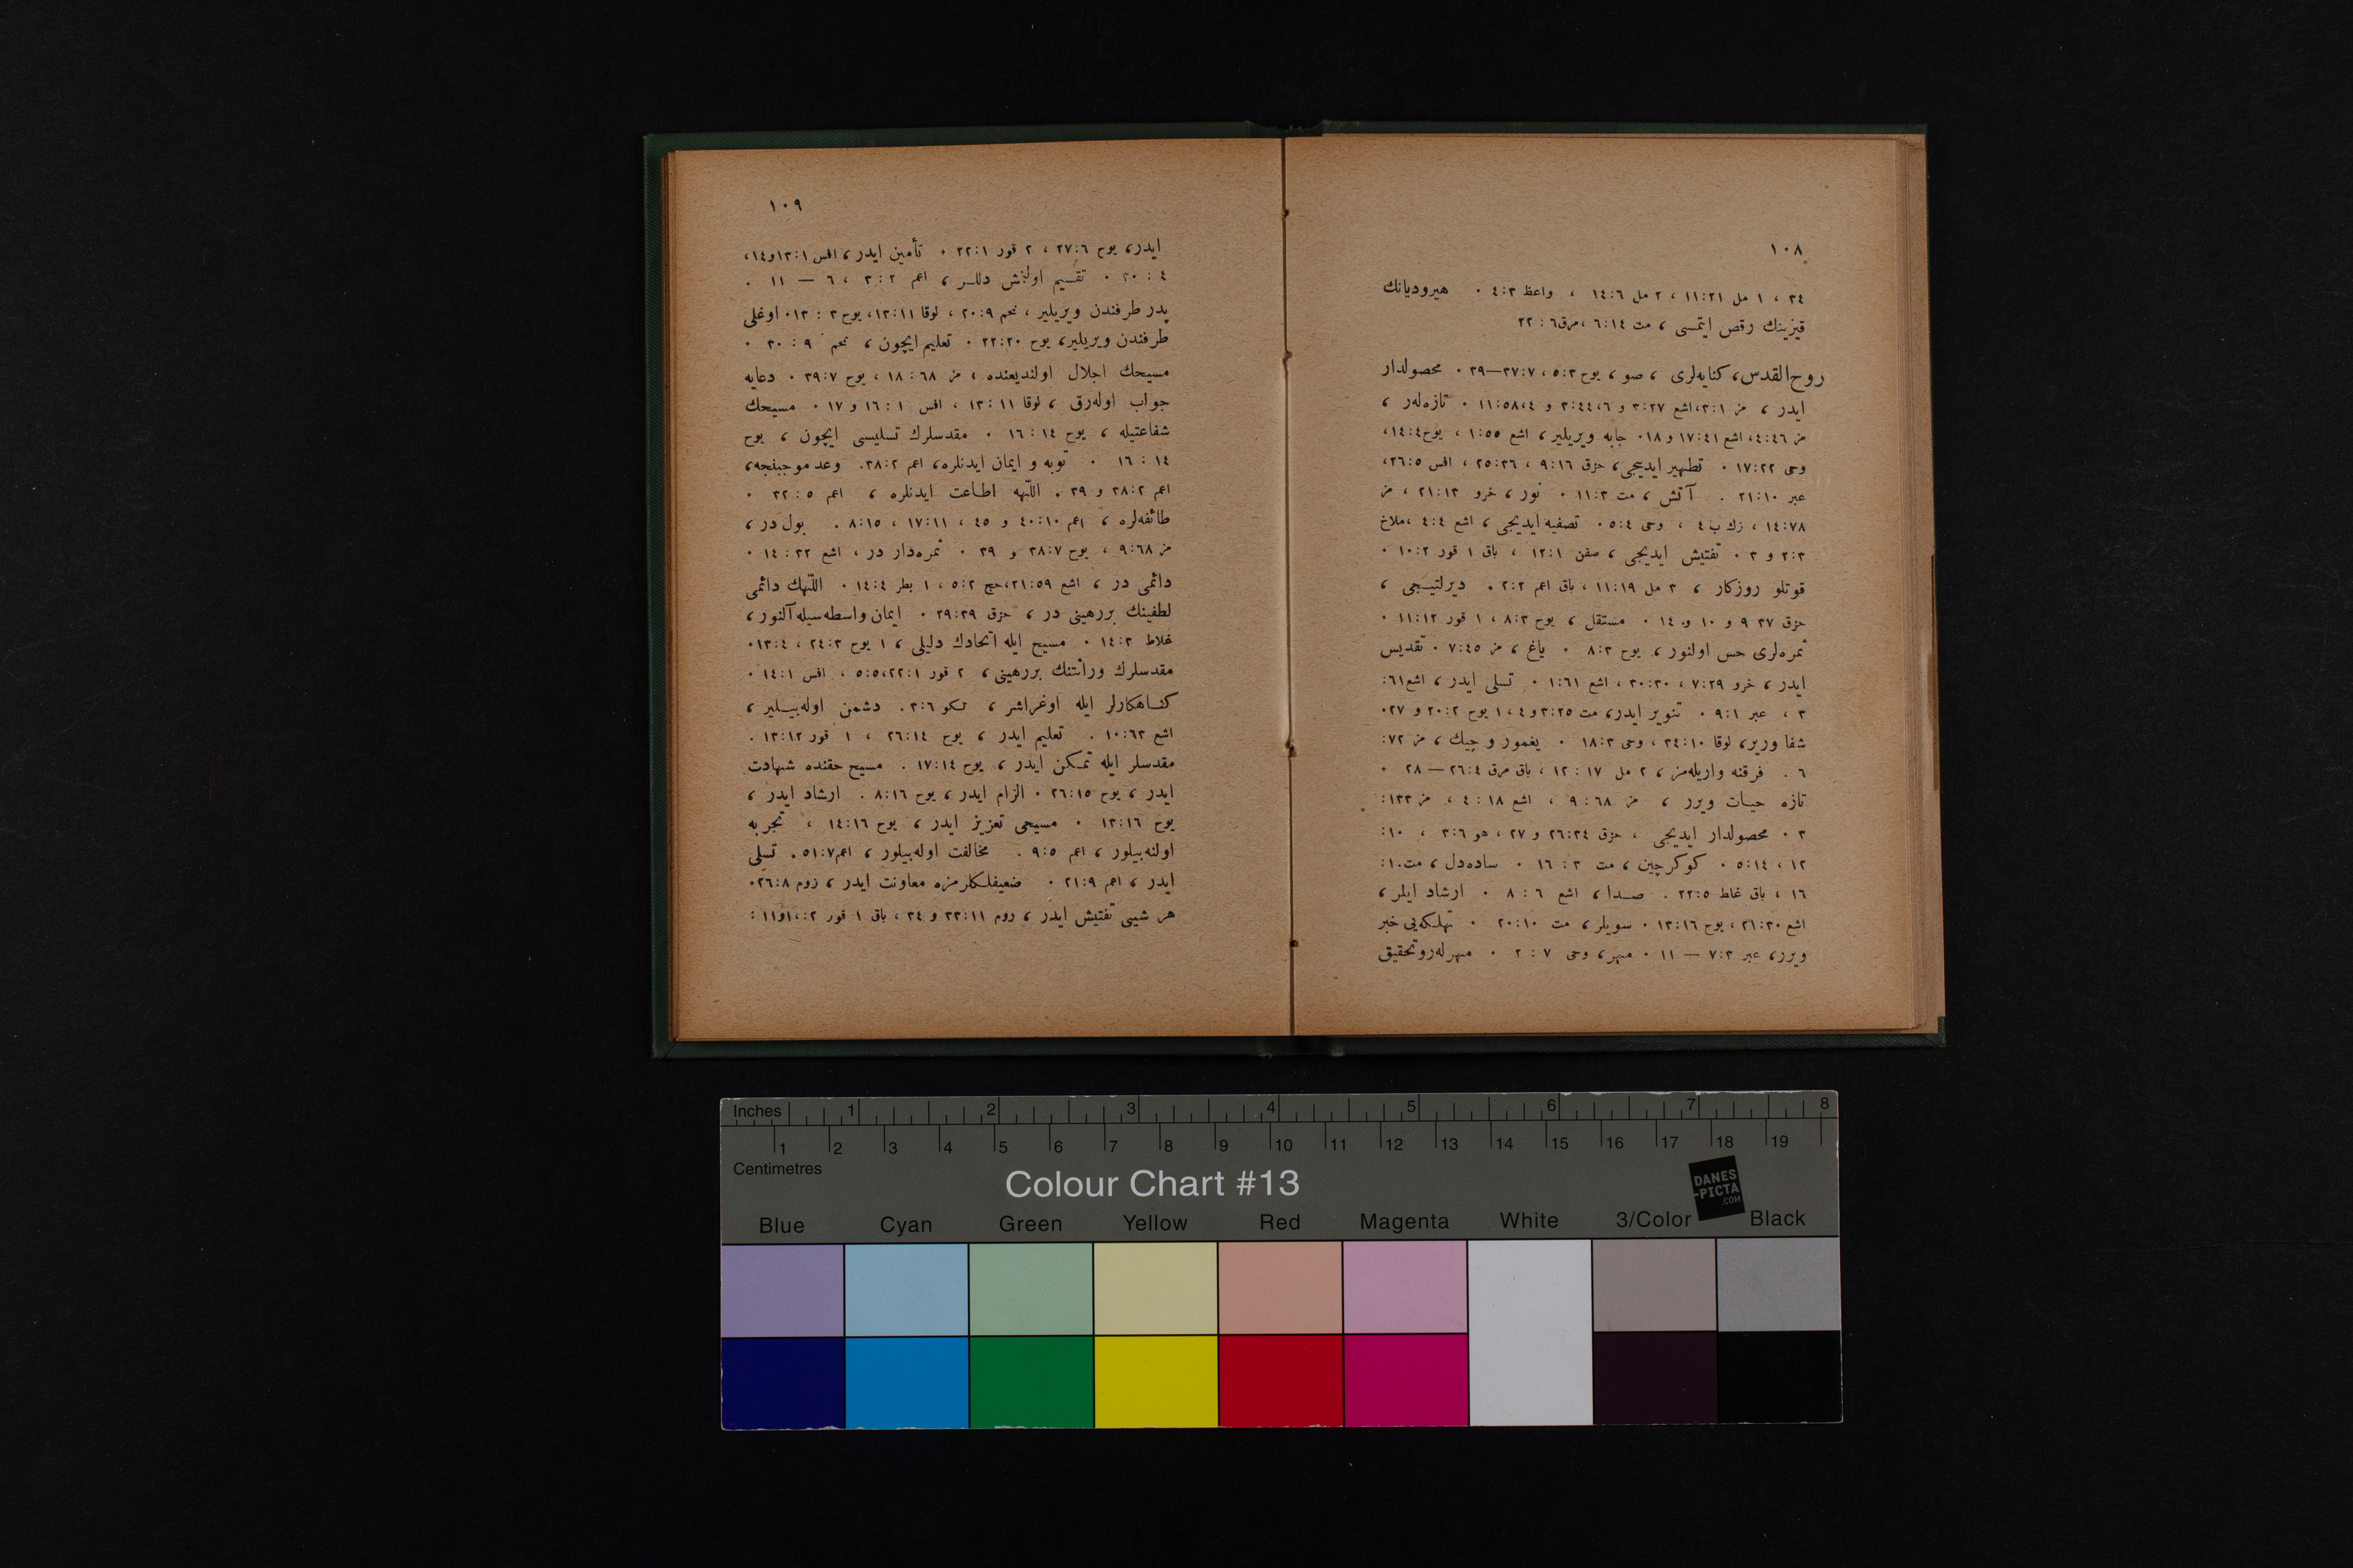 ١٠٨
٣٤ ، ١ مل ١١:٢١ ، ٢ مل ١٤:٦ ، واعظ ٤:٣ ٠ هيروديانك
قيزينك رقص ايتمسى ، مت ٦:١٤ ، مرق ٦ : ٢٢
روح القدس، كنايه‌لرى ، صو ، يوح ٥:٣ ، ٣٧:٧—٣٩ ٠ محصولدار
ايدر ، مز ٣:١، اشع ٣:٢٧ و ٦، ٣:٤٤ و ٤، ١١:٥٨ ٠ تازه‌لر ،
مز ٤:٤٦، اشع ١٧:٤١ و ١٨٠ جابه ويريلير ، اشع ١:٥٥ ، يوح ١٤:٤،
وحى ١٧:٢٢ ٠ تطهير ايديجى ، حزق ٩:١٦ ، ٢٥:٣٦ ، افس ٢٦:٥،
عبر ٢١:١٠ . آتش ، مت ١١:٣ ٠ نور ، خرو ٢١:١٣ ، مز
١٤:٧٨ ، زك ب ٤ ، وحى ٥:٤ ٠ تصفيه ايديجى ، اشع ٤:٤ ، ملاخ
٢:٣ و ٣ ٠ تفتيش ايديجى ، صفن ١٢:١ ، باق ١ قور ١٠:٢ ٠
قوتلو روزكار ، ٣ مل ١١:١٩ ، باق اعم ٢:٢ ٠ ديرلتيجى ،
حزق ٣٧ ٩ و ١٠ و ١٤ ٠ مستقل ، يوح ٨:٣ ، ١ قور ١١:١٢ ٠
ثمره‌لرى حس اولنور ، يوح ٨:٣ ٠ ياغ ، مز ٧:٤٥ ٠ تقديس
ايدر ، خرو ٧:٢٩ ، ٣٠:٣٠ ، اشع ١:٦١ ٠ تسلى ايدر ، اشع ٦١:
٣ ، عبر ٩:١ ٠ تنوير ايدر، مت ٣:٢٥ و ٤ ، ١ يوح ٢٠:٢ و ٢٧٠
شفا وريرى لوقا ٣٤:١٠ ، وحى ١٨:٣ ٠ يغمور و چيك ، مز ٧٢:
٦ . فرقنه واريله‌مز ، ٢ مل ١٧ : ١٢ ، باق مرق ٢٦:٤—٢٨ ٠
تازه حيات ويرر ، مز ٩:٦٨ ، اشع ٤:١٨ ، مز ١٣٣:
٣ ٠ محصولدار ايديجى ، حزق ٢٦:٣٤ و ٢٧ ، هو ٣:٦ ، ١٠:
١٢ ، ٥:١٤ ٠ كوكرچين ، مت ٣ : ١٦ ٠ ساده‌دل ، مت ١٠:
١٦ ، باق غلط ٢٢:٥ . صدا ، اشع ٦ : ٨ ٠ ارشاد ايلر ،
اشع ٢١:٣٠ ، يوح ١٣:١٦ ٠ سويلر ، مت ٢٠:١٠ ٠ تهلكه‌يى خبر
ويرر، عبر ٧:٣ — ١١ ٠ مهر، وحى ٧ : ٢ ٠ مهرلر و تحقيق
١٠٩
ايدر، يوح ٢٧:٦ ، ٢ قور ٢٢:١ ٠ تأمين ايدر ، افس ١٣:١ و ١٤،
٤ : ٣٠ ٠ تقسيم اولنمش دللـر ، اعم ٣:٢ ، ٦ — ١١ ٠
پدر طرفندن ويريلير ، نحم ٢٠:٩ ، لوقا ١٣:١١، يوح ٣ : ١٣٠ اوغلى
طرفندن ويريلير، يوح ٢٢:٢٠ ٠ تعليم ايچون ، نحم ٩ : ٣٠ ٠
مسيحك اجلال اولنديعنده ، مز ٦٨ : ١٨ ، يوح ٣٩:٧ ٠ دعايه
جواب اوله‌رق ، لوقا ١٣:١١ ، افس ١ : ١٦ و ١٧ ٠ مسيحك
شفاعتيله ، يوح ١٤ : ١٦ ٠ مقدسلرك تسليسى ايچون ، يوح
١٤ : ١٦ ٠ توبه و ايمان ايدنلره، اعم ٣٨:٢. وعد موجبنجه،
اعم ٣٨:٢ و ٣٩ . اللّٰهه اطاعت ايدنلره ، اعم ٥ : ٣٢ ٠
طائفه‌لره ، اعم ٤٠:١٠ و ٤٥ ، ١٧:١١ ، ٨:١٥ . بول در ،
مز ٩:٦٨ ، يوح ٣٨:٧ و ٣٩ ٠ ثمره‌دار در ، اشع ٣٢ : ١٤ ٠
دائمى در ، اشع ٢١:٥٩، حج ٥:٢ ، ١ بطر ١٤:٤ ٠ اللّٰهك دائمى
لطفينك بررهينى در ، حزق ٢٩:٣٩ ٠ ايمان واسطه‌سيله آلنور ،
غلاط ١٤:٣ ٠ مسيح ايله اتحادك دليلى ، ١ يوح ٢٤:٣ ، ١٣:٤٠
مقدسلرك وراثتنك بررهينى ، ٢ قور ٢٢:١،٥:٥ ، افس ١٤:١ ٠
كناهكارلر ايله اوغراشر ، تكو ٣:٦. دشمن اوله‌بيلير ،
اشع ١٠:٦٣ . تعليم ايدر ، يوح ٢٦:١٤ ، ١ قور ١٣:١٢ .
مقدسلر ايله تمكن ايدر ، يوح ١٧:١٤ . مسيح حقنده شهادت
ايدر ، يوح ٢٦:١٥ ٠ الزام ايدر ، يوح ٨:١٦ . ارشاد ايدر ،
يوح ١٣:١٦ ٠ مسيحى تعزيز ايدر ، يوح ١٤:١٦ ، تجربه
اولنه‌بيلور ، اعم ٩:٥ . مخالفت اوله‌بيلور ، اعم ٥١:٧. تسلى
ايدر ، اعم ٢١:٩ ٠ ضعيفلكلرمزه معاونت ايدر ، روم ٢٦:٨٠
هر شيى تفتيش ايدر ، روم ٣٣:١١ و ٣٤ ، باق ١ قور ٢: ١٠ و ١١ :
Inches 1 2 3 4 5 6 7 8
1 2 3 4 5 6 7 8 9 10 11 12 13 14 15 16 17 18 19
Centimetres
Colour Chart #13
DANES
-PICTA
.COM
Blue Cyan Green Yellow Red Magenta White 3/Color Black